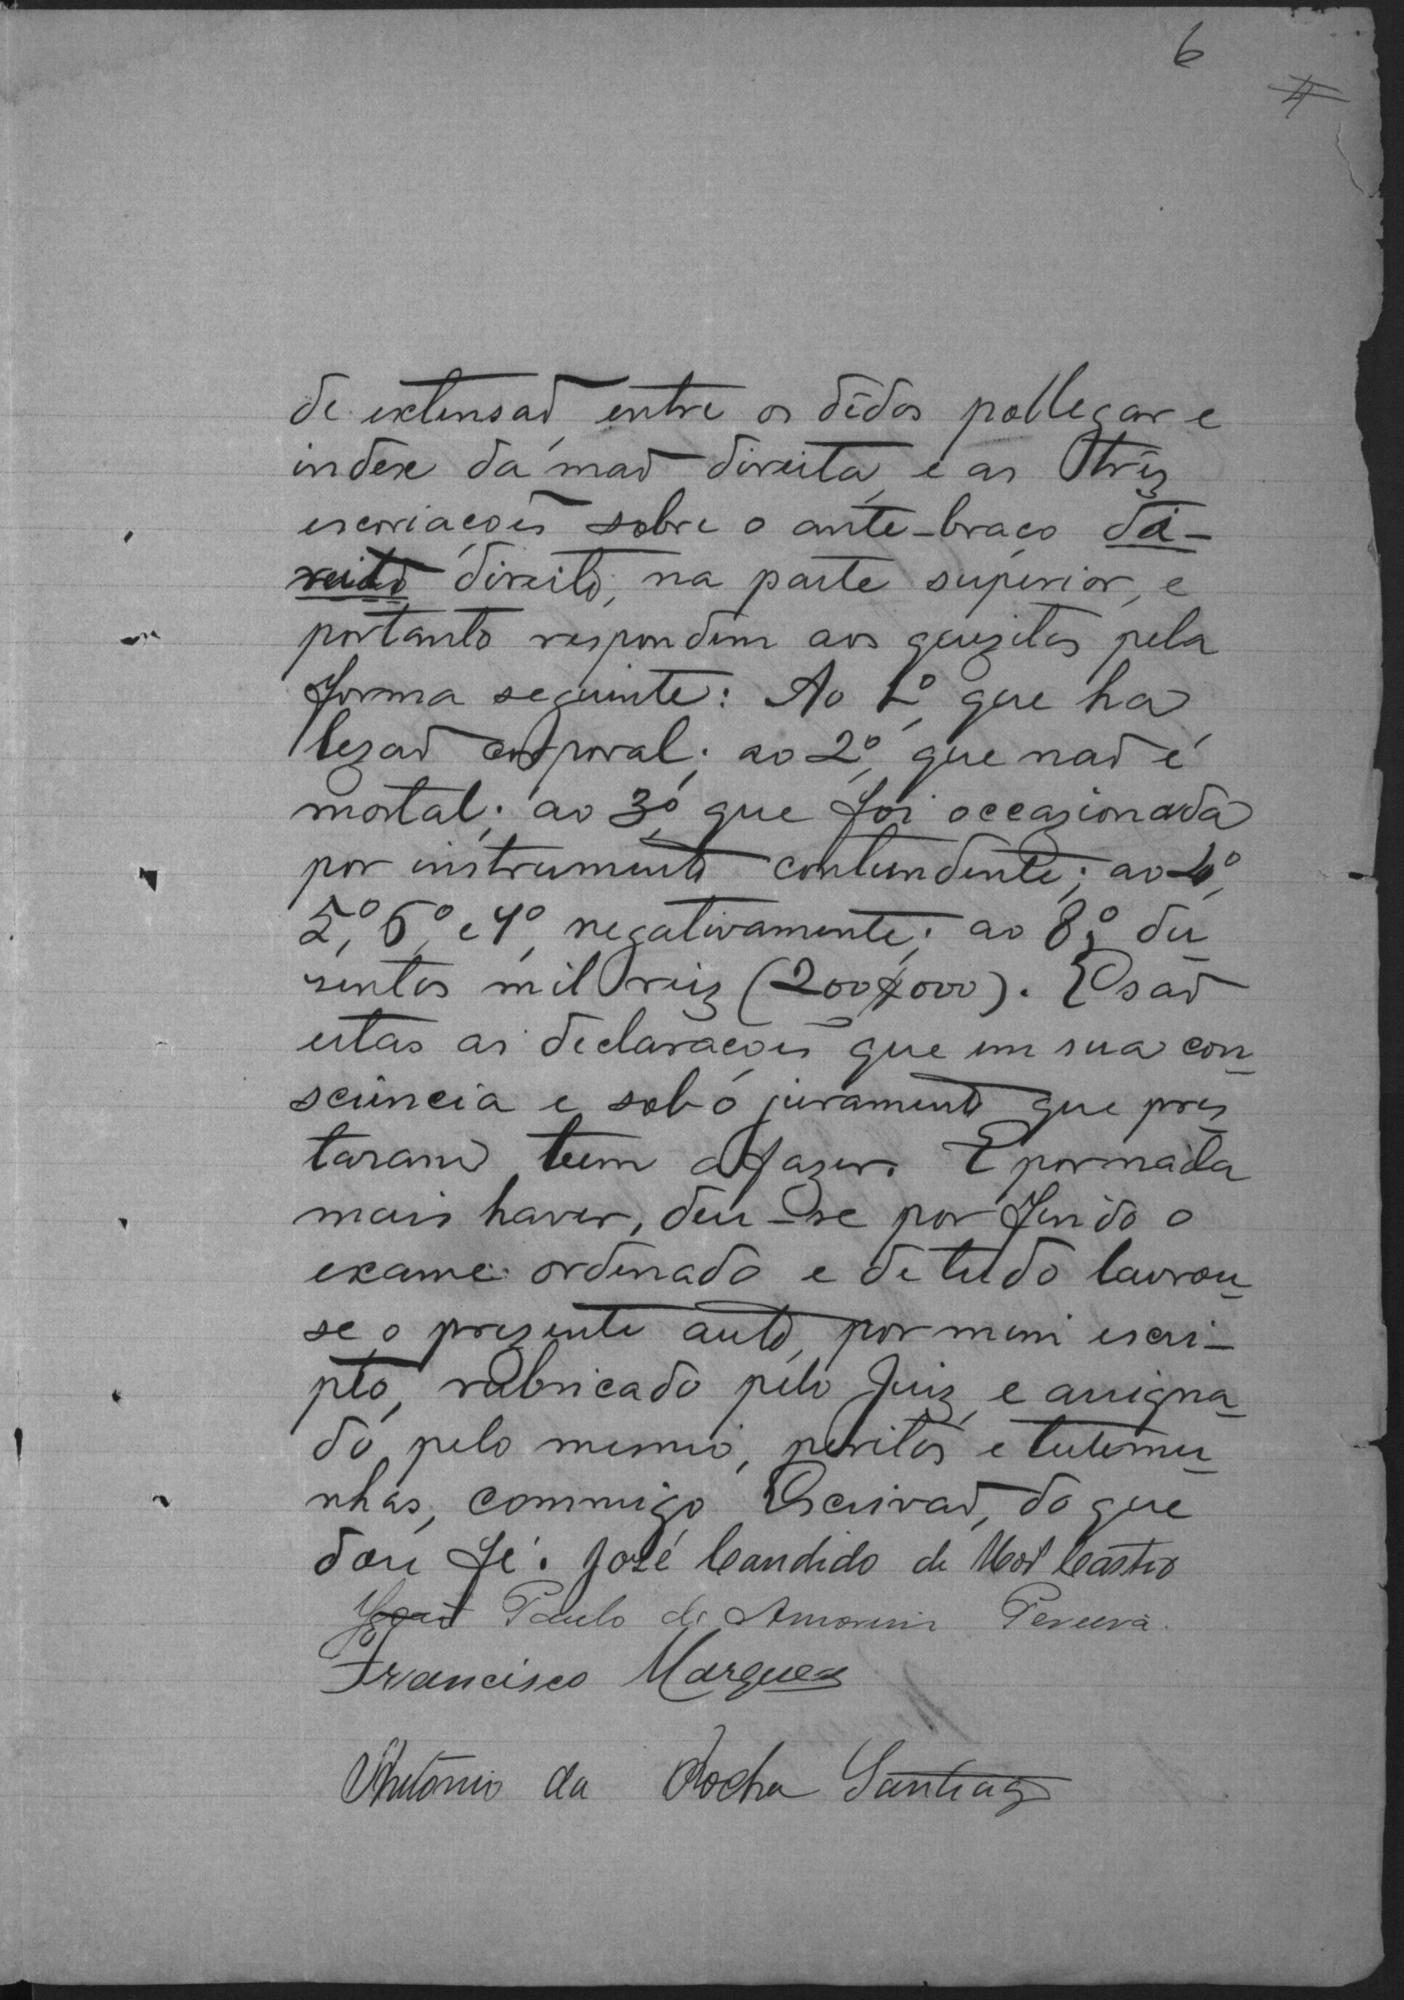 6
4
de extensaõ entre os dêdos pollegar e
index da maõ direita, e as três
escoriações sobre o ante-braço di-
reito direito, na parte superior, e
portanto respondem aos quesitos pela
forma seguinte: Ao 1º, que ha
lezaõ corporal; ao 2º, que naõ é
mortal; ao 3º, que foi occazionada
por instrumento contundente; ao 4º,
5º, 6º, e 7º, negativamente; ao 8º, du
zentos mil reiz (200$000). E saõ
estas as declarações que em sua con-
sciencia e sob o juramento que pres
taram tem a fazer. E por nada
mais haver, deu-se por findo o
exame ordenado e de tudo lavrou-
se o prezente auto, por mim escri-
pto, rubricado pelo Juiz, e assigna-
do pelo mesmo, peritos e testemu-
nhas, commigo Escrivaõ, do que
dou fé. José Candido de Castro
Joaõ Paulo de Amorim Pereira.
Francisco Marques
Antônio da Rocha Santiago